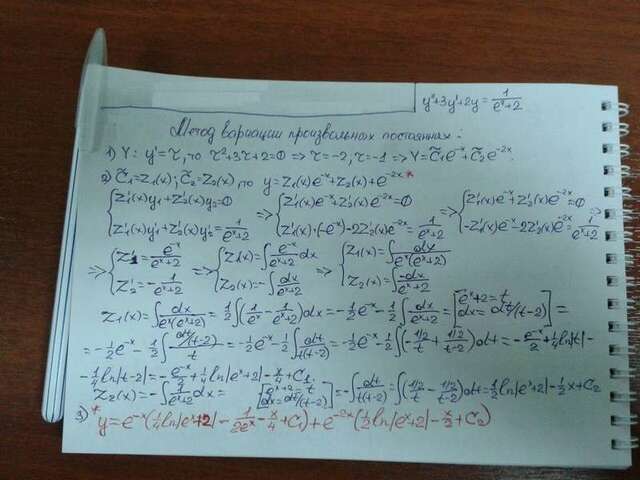 y″+3y′+2y = 1/(eˣ+2)
Метод вариации произвольных постоянных:
1) Y: y′=τ, то τ²+3τ+2=0 => τ=-2, τ=-1 => Y=C̃₁e⁻ˣ+C̃₂e⁻²ˣ.
2) C̃₁=Z₁(x); C̃₂=Z₂(x), то y=Z₁(x)e⁻ˣ+Z₂(x)+e⁻²ˣ*
{Z₁′(x)y₁+Z₂′(x)y₂=0 => {Z₁′(x)e⁻ˣ+Z₂′(x)e⁻²ˣ=0 => {Z₁′(x)e⁻ˣ+Z₂′(x)e⁻²ˣ=0 =>
{Z₁′(x)y₁′+Z₂′(x)y₂′=1/(eˣ+2) {Z₁′(x)·(-e⁻ˣ)-2Z₂′(x)e⁻²ˣ=1/(eˣ+2) {-Z₁′(x)e⁻ˣ-2Z₂′(x)e⁻²ˣ=1/(eˣ+2)
=> {Z₁′=e⁻ˣ/(eˣ+2) => {Z₁(x)=∫e⁻ˣ/(eˣ+2)dx => {Z₁(x)=∫dx/(eˣ(eˣ+2))
{Z₂′=-1/(eˣ+2) {Z₂(x)=-∫dx/(eˣ+2) {Z₂(x)=∫-dx/(eˣ+2)
Z₁(x)=∫dx/(eˣ(eˣ+2))=1/2∫(1/eˣ-1/(eˣ+2))dx=-1/2e⁻ˣ-1/2∫dx/(eˣ+2)=[eˣ+2=t dx=dt/(t-2)]=
=-1/2e⁻ˣ-1/2∫(dt/(t-2))/t=-1/2e⁻ˣ-1/2∫dt/(t(t-2))=-1/2e⁻ˣ-1/2∫(-(1/2)/t+(1/2)/(t-2))dt=-e⁻ˣ/2+1/4ln|t|-
-1/4ln|t-2|=-e⁻ˣ/2+1/4ln|eˣ+2|-x/4+C₁
Z₂(x)=-∫1/(eˣ+2)dx=[eˣ+2=t dx=dt/(t-2)]=-∫dt/(t(t-2))=∫((1/2)/t-(1/2)/(t-2))dt=1/2ln|eˣ+2|-1/2x+C₂
3)* y=e⁻ˣ(1/4ln|eˣ+2|-1/(2eˣ)-x/4+C₁)+e⁻²ˣ(1/2ln|eˣ+2|-x/2+C₂)